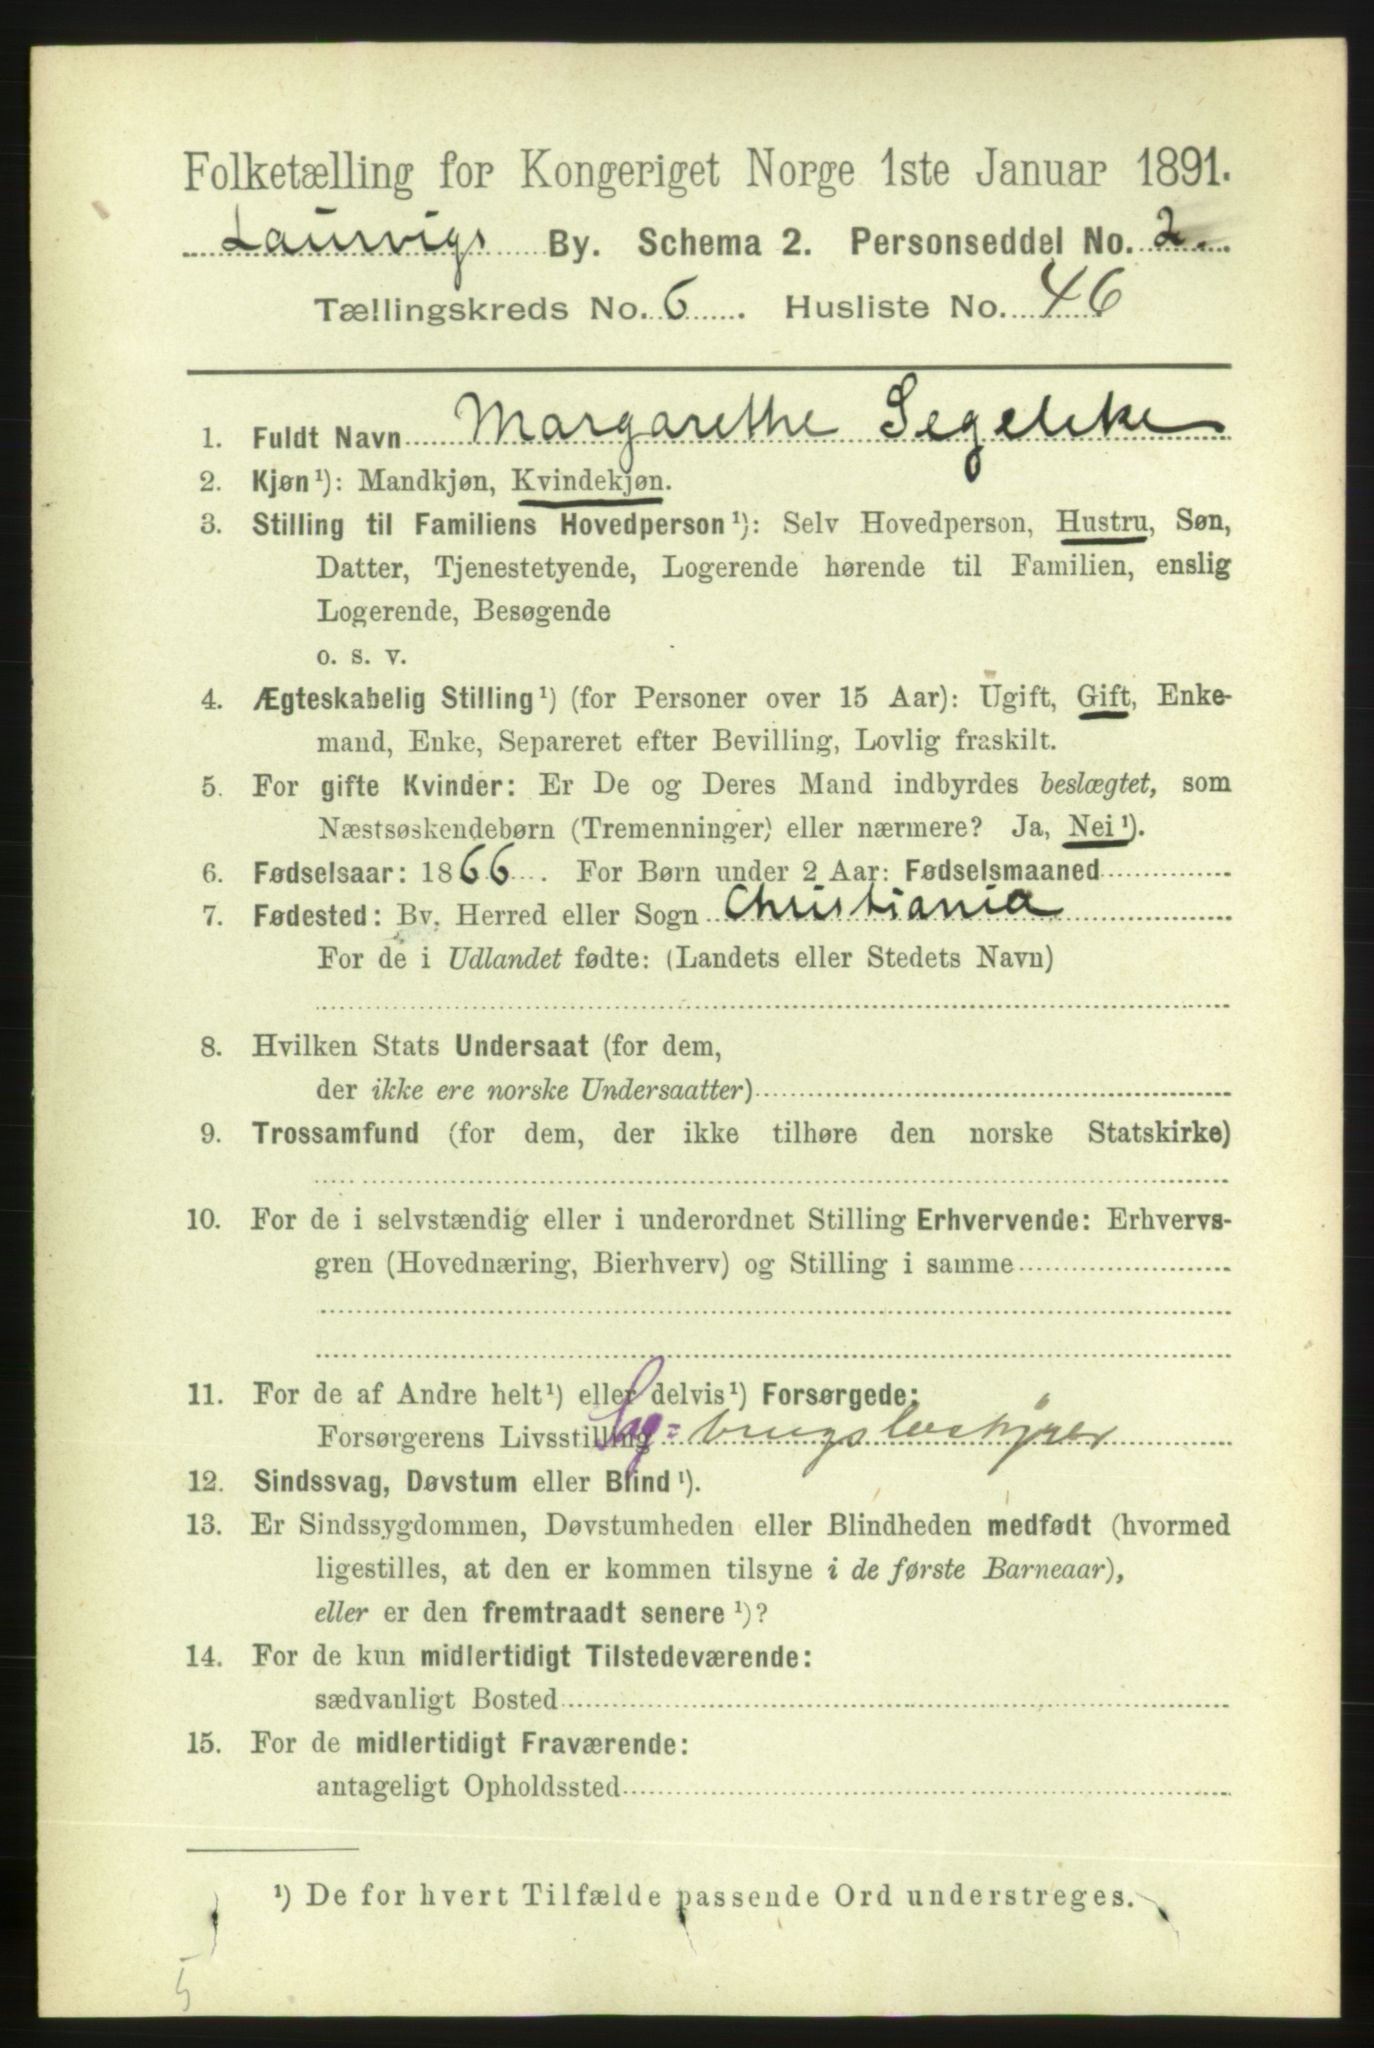 Folketælling for Kongeriget Norge 1ste Januar 1891.
Laurvigs By. Schema 2. Personseddel No. 2.
Tællingskreds No. 6. Husliste No. 46
1. Fuldt Navn Margarethe Segelcke
2. Kjøn¹): Mandkjøn, Kvindekjøn.
3. Stilling til Familiens Hovedperson¹): Selv Hovedperson, Hustru, Søn,
Datter, Tjenestetyende, Logerende hørende til Familien, enslig
Logerende, Besøgende
o. s. v.
4. Ægteskabelig Stilling¹) (for Personer over 15 Aar): Ugift, Gift, Enke-
mand, Enke, Separeret efter Bevilling, Lovlig fraskilt.
5. For gifte Kvinder: Er De og Deres Mand indbyrdes beslægtet, som
Næstsøskendebørn (Tremenninger) eller nærmere? Ja, Nei¹).
6. Fødselsaar: 1866. For Børn under 2 Aar: Fødselsmaaned
7. Fødested: By, Herred eller Sogn Christiania
For de i Udlandet fødte: (Landets eller Stedets Navn)
8. Hvilken Stats Undersaat (for dem,
der ikke ere norske Undersaatter)
9. Trossamfund (for dem, der ikke tilhøre den norske Statskirke)
10. For de i selvstændig eller i underordnet Stilling Erhvervende: Erhvervs-
gren (Hovednæring, Bierhverv) og Stilling i samme
11. For de af Andre helt¹) eller delvis¹) Forsørgede:
Forsørgerens Livsstilling
12. Sindssvag, Døvstum eller Blind¹).
13. Er Sindssygdommen, Døvstumheden eller Blindheden medfødt (hvormed
ligestilles, at den er kommen tilsyne i de første Barneaar),
eller er den fremtraadt senere¹)?
14. For de kun midlertidigt Tilstedeværende:
sædvanligt Bosted
15. For de midlertidigt Fraværende:
antageligt Opholdssted
¹) De for hvert Tilfælde passende Ord understreges.
5